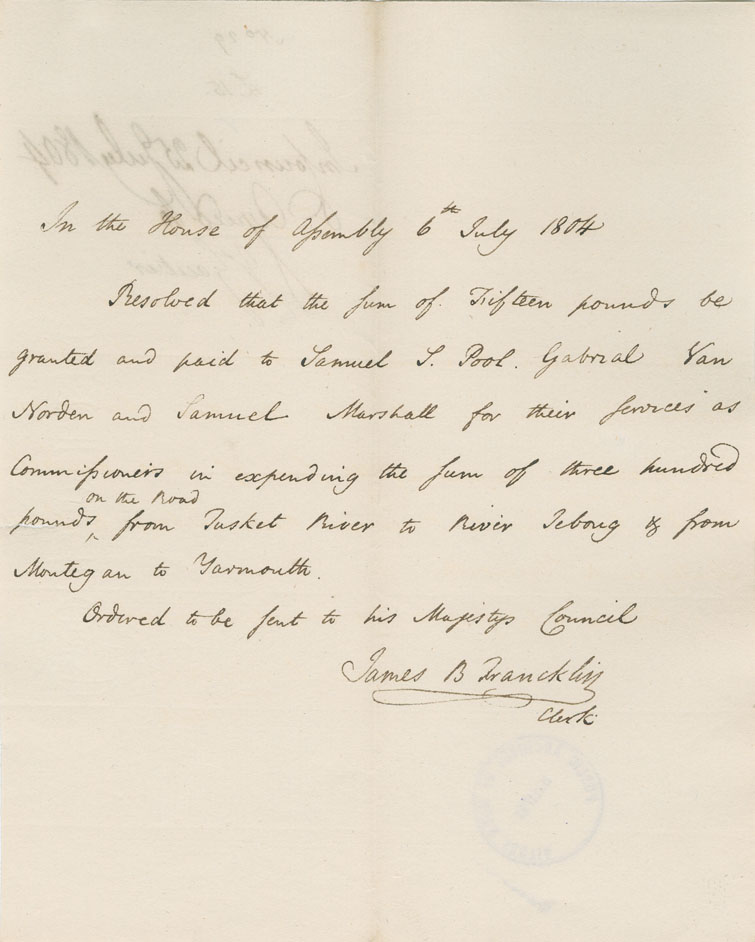 In the House of Assembly 6th July 1804
Resolved that the sum of Fifteen pounds be
granted and paid to Samuel S. Pool. Gabrial Van
Norden and Samuel Marshall for their services as
Commissioners in expending the sum of three hundred
on the Road
pounds ^ from Tusket River to River Teboug & from
Montegan to Yarmouth.
Ordered to be sent to his Majestys Council
James B Francklin
Clerk